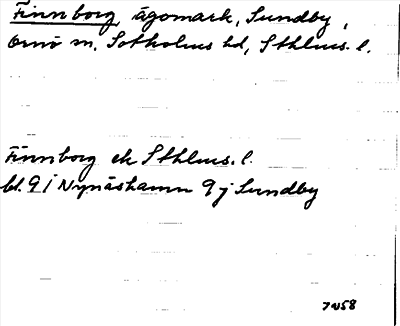 Finnborg, ägomark, Sundby,
Ornö sn, Sotholms hd, Sthlms. l.
Finnborg ek Sthlms. l.
bl. 9 I Nynäshamn 9 j Sundby